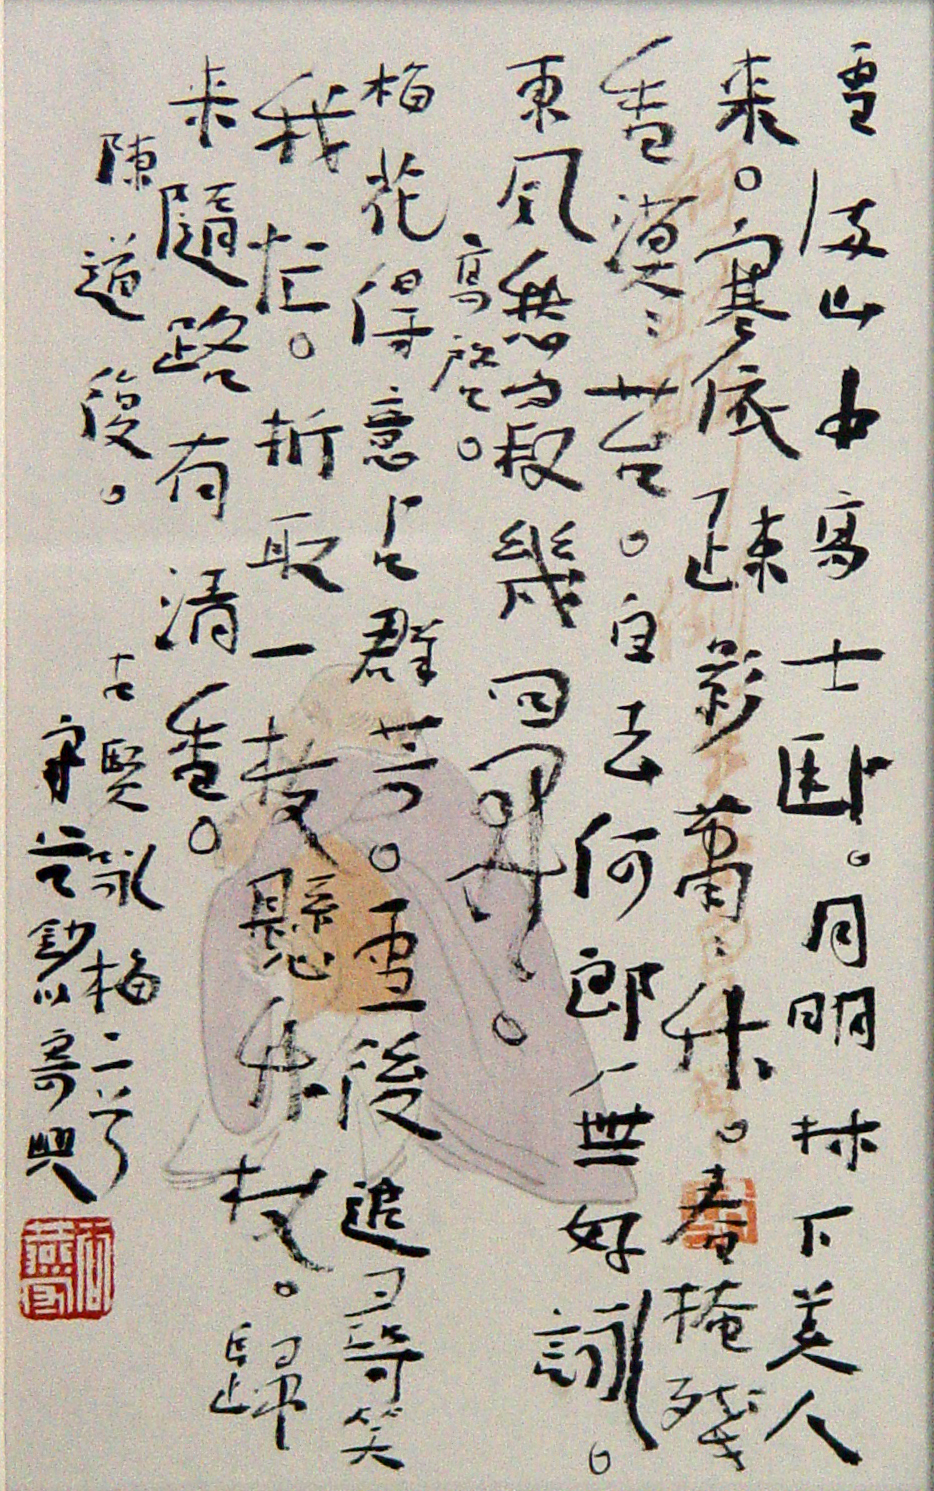 雪满山中高士卧。月明林下美人
来。寒依疎影萧〻竹。春掩残
香漠〻苔。自去何郎無好詠。
東风愁寂幾回開。
高啓。
梅花得意占群芳。雪後追尋笑
我忙。折取一枝懸竹杖。歸
来隨路有清香。
陳道復。
古賢詠梅二首
鈔以寄興